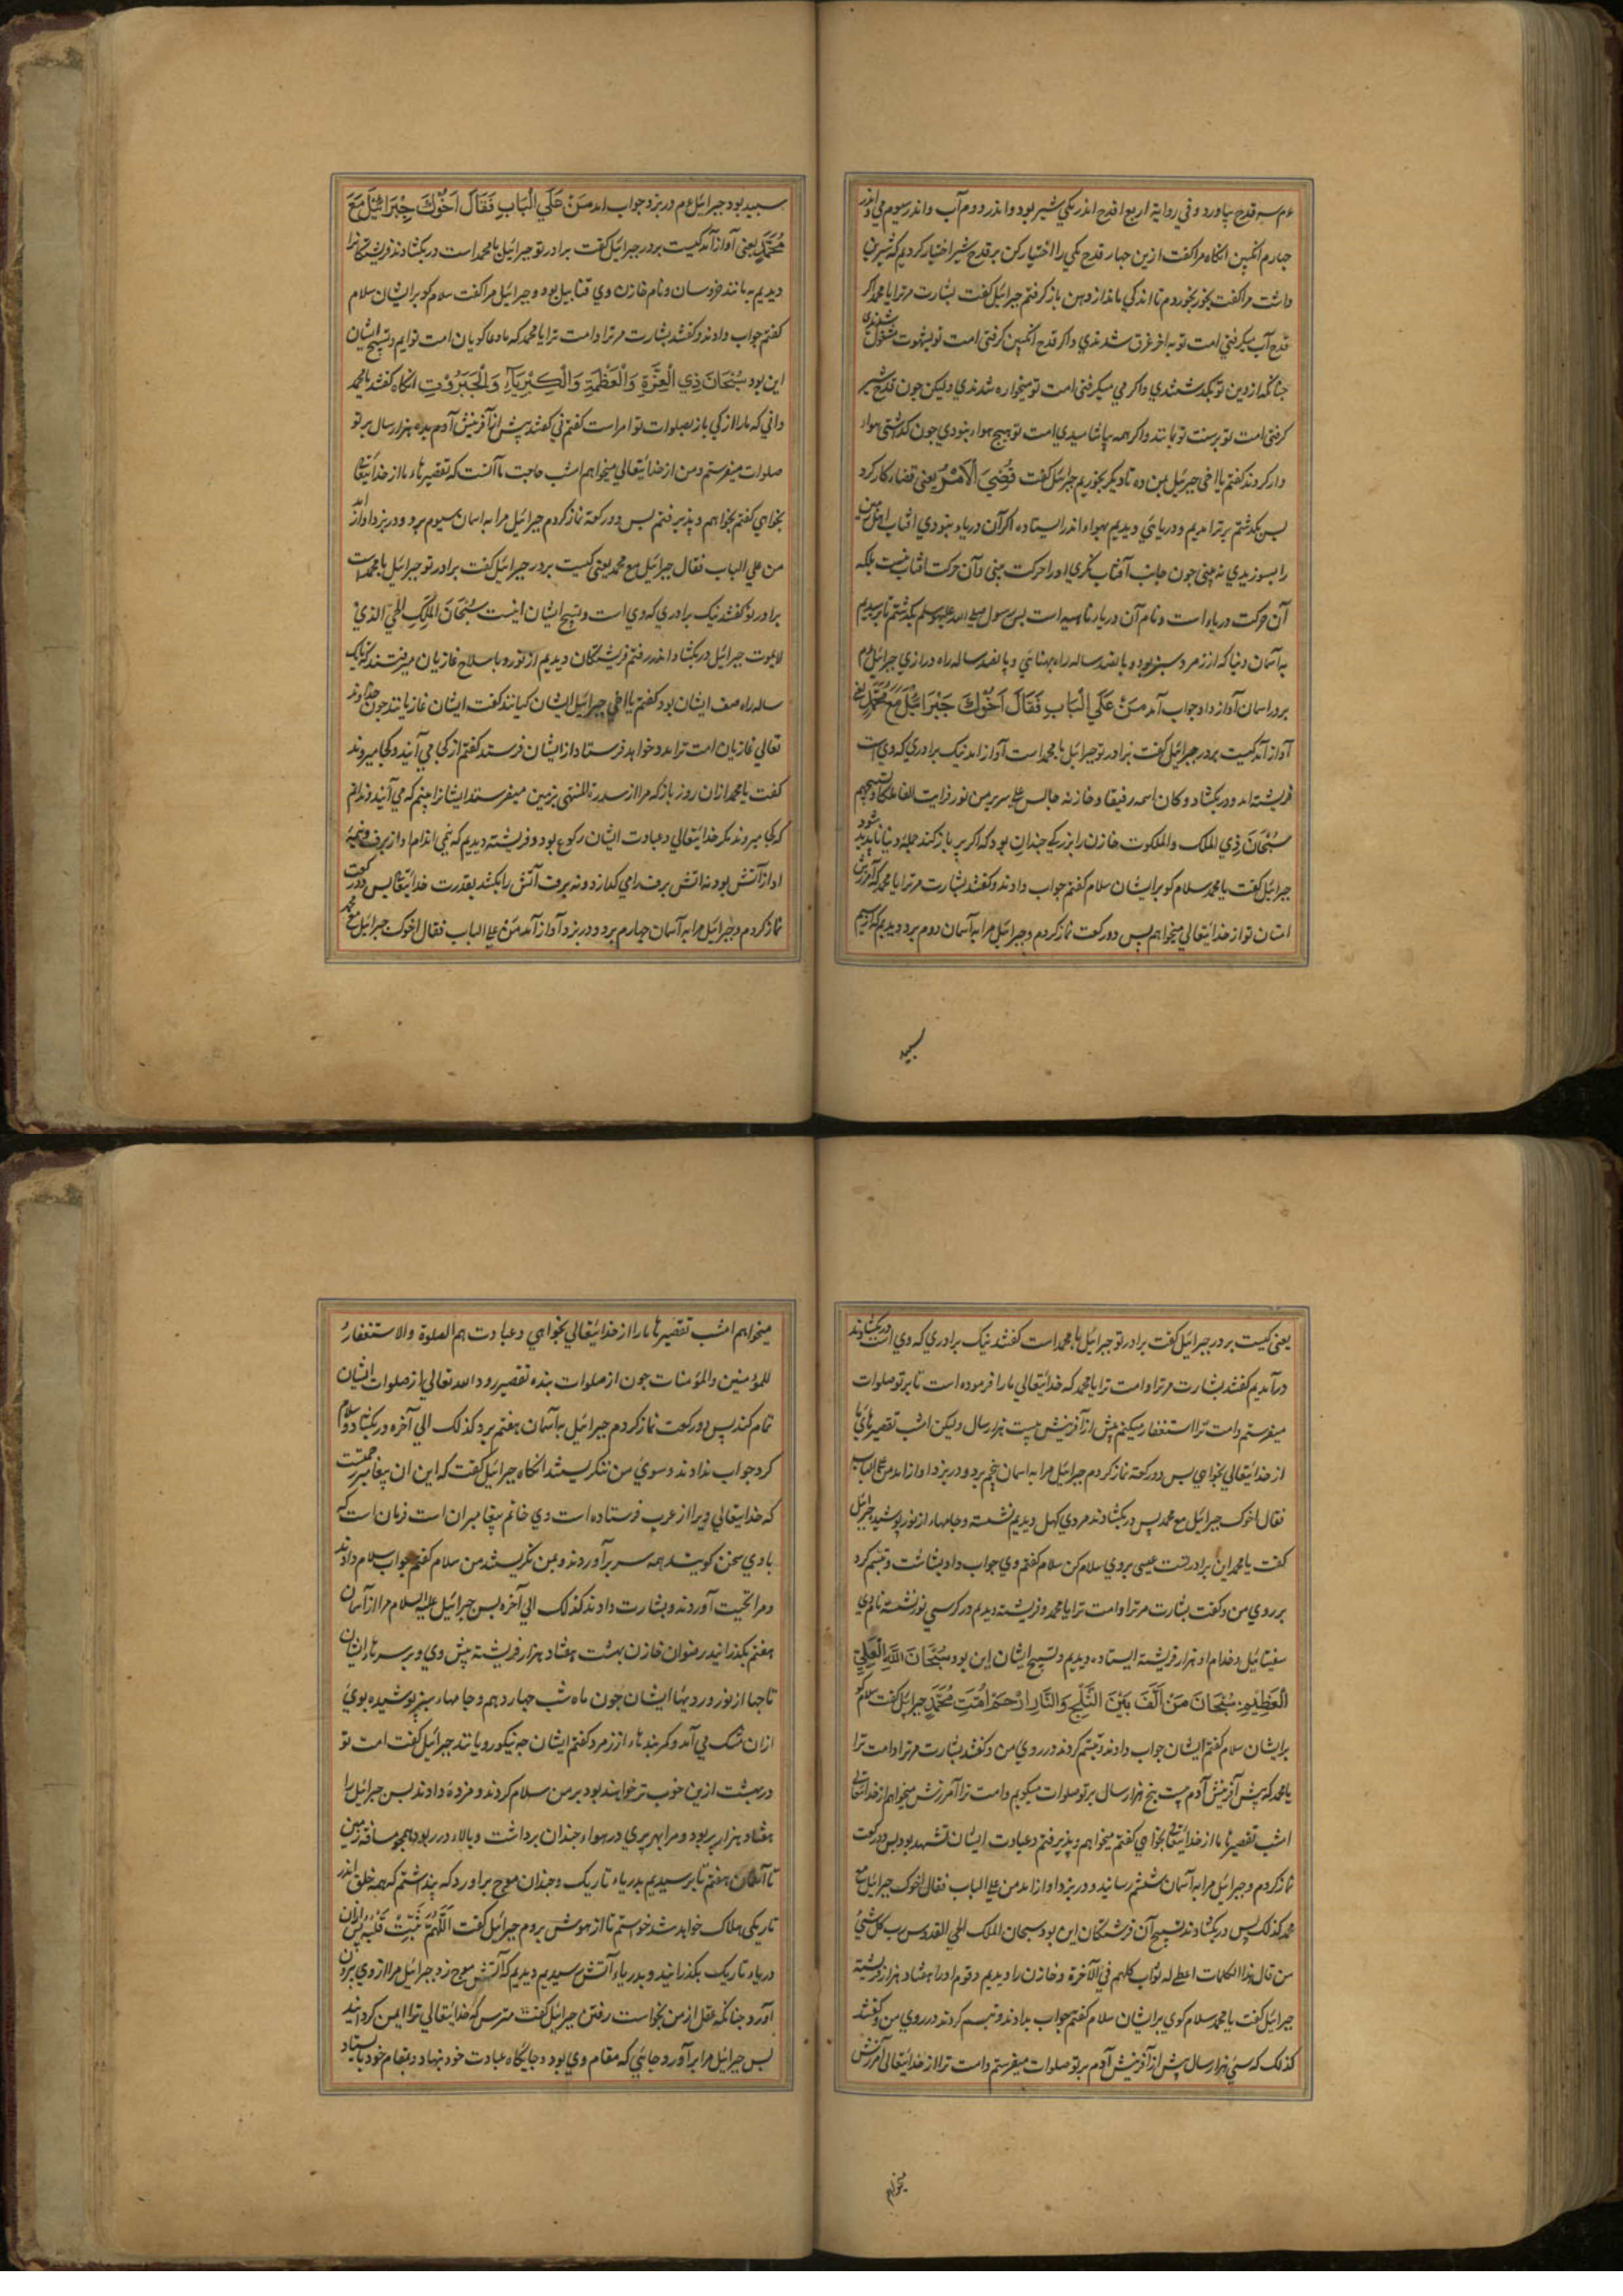 ءم سه قدح بیاورد و في روایة اربع اقدح اندر یکي شیر بود و اندر دوم آب و اندر سیوم مي و اندر
جهارم انکبین انکاه مرا کفت ازین جهار قدح یکي را اختیار کن بر قدح شیر اختیار کردیم که شیرین
داشت مرا کفت بخور بخوردم تا اندکي ماند از دهن باز کرفتم جبرائیل کفت بشارت مر ترا یا محمد اکر
قدح آب میکرفتي امت تو بآخر غرق شدندي و اکر قدح انکبین کرفتي امت تو بشهوت مشغول شدندي
جنانکه از دین تو بکذشتندي و اکر مي میکرفتي امت تو میخواره شدندي ولیکن جون قدح شیر
کرفتي امت تو بر سنت تو بمانند و اکر همه بیاشامیدي امت تو هیج هوادار نبودي جون کذاشتي هوا
دار کردند کفتم یا اخي جبرئیل بمن ده تا دیکر بخوریم جبرائیل کفت قُضِيَ الْاَمْرُ یعني قضاء کار کرد
بس بکذشتم برتر امدیم و دریائي دیدیم بهواء اندر ایستاده اکر آن دریاء نبودي افتاب اهل زمین
را بسوزیدي نه بیني جون جانب آفتاب نکري او را حرکت بیني و آن حرکت افتاب نیست بلکه
آن حرکت دریاء است و نام آن دریاء ناهید است بس رسول صلی الله علیه وسلم بکذشتم تا برسیدیم
به آسمان دنیا که از زمرد سبز بود و پانصد ساله راه پهنائي و پانصد ساله راه درازي جبرائیل ءم
بر در اسمان آواز داد جواب آمد مَنْ عَلَي الْبَابِ فَقَالَ اَخُوْكَ جَبْرَائِيْلُ مَعَ مُحَمَّدٍ یعني
آواز آمد کیست بر در جبرائیل کفت برادر تو جبرائیل با محمد است آواز امد نیک برادري که وي است
فریشته امد و در بکشاد و کان اسمه رفیقا و خازنه جالس علی سریر من نور فرایت الفا ملکا و تسبیحهم
سُبْحَانَ ذِي الملک والملکوت خازن را بزرکي جندان بود که اکر پر باز کند جمله دنیا ناپدید شود
جبرائیل کفت یا محمد سلام کو بر ایشان سلام کفتم جواب دادند و کفتند بشارت مر ترا یا محمد که آمرزش
امتان تو از خدایتعالي میخواهم پس دو رکعت نماز کردم و جبرائیل مرا به آسمان دوم برد دیدیم که از سیم
سپید
سپید بود جبرائیل ءم در بزد جواب امد مَنْ عَلَي الْبَابِ فَقَالَ اَخُوْكَ جِبْرَائِيْلُ مَعَ
مُحَمَّدٍ یعني آواز آمد کیست بر در جبرائیل کفت برادر تو جبرائیل با محمد است در بکشادند فریشتکانرا
دیدیم به مانند خروسان و نام خازن وي قنابیل بود و جبرائیل مرا کفت سلام کو بر ایشان سلام
کفتم جواب دادند و کفتند بشارت مر ترا و امت ترا یا محمد که ما دعا کویان امت توایم و تسبیح ایشان
این بود سُبْحَانَ ذِي الْعِزَّةِ وَالْعَظْمَةِ وَالْكِبْرِيَآءِ وَالْجَبَرُوْتِ انکاه کفتند یا محمد
داني که ما را از کي باز بصلوات تو امر است کفتم ني کفتند پیش از آفرینش آدم به ده هزار سال بر تو
صلوات میفرستم و من از خدایتعالي میخواهم امشب حاجت ما آنست که تقصیرهاء ما از خدایتعالی
بخواهي کفتم بخواهم و پذیرفتم بس دو رکعة نماز کردم جبرائیل مرا به اسمان سیوم برد و در بزد اواز آمد
من علي الباب فقال جبرائیل مع محمد یعني کیست بر در جبرائیل کفت برادر تو جبرائیل با محمد است
برادر تو کفتند نیک برادري که وي است و تسبیح ایشان اینست سُبْحَانَ الْمَلِكِ الْحَيِّ الَّذِيْ
لا یموت جبرائیل در بکشاد و اندر رفتم فریشتکان دیدیم از نور و با سلاح غازیان میرفتند که یک
ساله راه صف ایشان بود کفتم یا اخي جبرائیل ایشان کیانند کفت ایشان غازیانند جون خداوند
تعالي غازیان امت ترا مدد خواهد فرستاد از ایشان فرستد کفتم از کجا مي آیند و کجا میروند
کفت یا محمد از ان روز باز که مرا از سدرة المنتهی بزمین میفرستند ایشانرا بینم که مي آیند و ندانم
که کجا میروند مکر خدایتعالي و عبادت ایشان رکوع بود و فریشته دیدیم که نیمي اندام او از برف و نیمهٔ
او از آتش بود نه اتش برف را مي کدازد و نه برف آتش را بکشد بقدرت خدایتعالی پس دو رکعت
نماز کردم و جبرائیل مرا به آسمان جهارم برد و در بزد آواز آمد مَنْ علی الباب فقال اخوک جبرائیل مع محمد
یعني کیست بر در جبرائیل کفت برادر تو جبرائیل با محمد است کفتند نیک برادري که وي است در بکشادند
درآمدیم کفتند بشارت مر ترا و امت ترا یا محمد که خدایتعالي ما را فرموده است تا بر تو صلوات
میفرستم و امت ترا استغفار میکنم پیش از آفرینش بیست هزار سال ولیکن امشب تقصیرهاي ما
از خدایتعالي بخواهي بس دو رکعة نماز کردم جبرائیل مرا به اسمان پنجم برد و در بزد اواز امد من علی الباب
فقال اخوک جبرائیل مع محمد پس در بکشادند مردي کهل دیدیم نشسته و جامهاء از نور پوشیده جبرائیل
کفت یا محمد این برادر تست عیسی بر وي سلام کن سلام کفتم وي جواب داد بشاشت و تبسم کرد
بر روي من و کفت بشارت مر ترا و امت ترا یا محمد و فریشته دیدیم در کرسي نور نشسته نام وي
سفیتائیل و خدام او هزار فریشته ایستاده دیدیم و تسبیح ایشان این بود سُبْحَانَ اللهِ الْعَلِيِّ
الْعَظِيْمِ سُبْحَانَ مَنْ اَلَّفَ بَيْنَ الثَّلْجِ وَالنَّارِ ارْحَمْ اُمَّتَ مُحَمَّدٍ جبرائیل کفت سلام کو
بر ایشان سلام کفتم ایشان جواب دادند و تبسم کردند در روي من و کفتند بشارت مر ترا و امت ترا
یا محمد که پیش آفرینش آدم بیست پنج هزار سال بر تو صلوات میکویم و امت ترا آمرزش میخواهم از خدایتعالی
امشب تقصیرها ما از خدایتعالی بخواهي کفتم میخواهم و پذیرفتم و عبادت ایشان تشهد بود بس دو رکعت
نماز کردم و جبرائیل مرا به آسمان ششم رسانید و در بزد اواز امد من علی الباب فقال اخوک جبرائیل مع
محمد کذلک پس در بکشادند تسبیح آن فرشتکان این بود سبحان الملک الحي القدوس رب کل شيء
من قال هذا الکلمات اعطی له ثواب کلهم في الآخرة و خازن را دیدیم و قوم او را هشتاد هزار فریشته
جبرائیل کفت یا محمد سلام کوي بر ایشان سلام کفتم جواب بدادند و تبسم کردند در روي من و کفتند
کذلک که سي هزار سال پیش از آفرینش آدم بر تو صلوات میفرستم و امت ترا از خدایتعالی آمرزش
میخواهم
میخواهم امشب تقصیرها ما را از خدایتعالي بخواهي و عبادت هم الصلوة والاستغفارُ
للمؤمنین والمؤمنات جون از صلوات بنده تقصیر رود الله تعالي از صلوات ایشان
تمام کند پس دو رکعت نماز کردم جبرائیل به آسمان هفتم برد کذلک الي آخره در بکشاد و سلام
کرد جواب ندادند و سوي من ننکریستند انکاه جبرائیل کفت که این ان پیغامبر رحمتست
که خدایتعالي ویرا از عرب فرستاده است وي خاتم پیغامبران است فرمان است که
با وي سخن کویند همه سر برآوردند و بمن نکریستند من سلام کفتم جواب سلام دادند
و مرا تحیت آوردند و بشارت دادند کذلک الي آخره بس جبرائیل علیه السلام مرا از آسمان
هفتم بکذرانید رضوان خازن بهشت هفتاد هزار فریشته پیش وي و بر سرهاء ایشان
تاجها از نور و رویها ایشان جون ماه شب جهاردهم و جامهاء سبز پوشیده بوي
از ان مشک مي آمد و کمربندهاء از زمرد کفتم ایشان جه نیکو رویانند جبرائیل کفت امت تو
در بهشت ازین خوب تر خواهند بود بر من سلام کردند و مزده دادند بس جبرائیل را
هفتاد هزار پر بود و مرا بهر پري در هواء جندان برداشت و بالاء در ربود همجو مسافت زمین
تا آسمان هفتم تا برسیدیم بدریاء تاریک و جندان موج براورد که پنداشتم که همه خلق اندر
تاریکي هلاک خواهد شد خواستم تا از هوش بروم جبرائیل کفت اَللّٰهُمَّ ثَبِّتْ قَلْبَهُ پس از ان
دریاء تاریک بکذرانید و بدریاء آتش رسیدیم دیدیم که آتش موج زد جبرائیل مرا از وي برون
آورد جنانکه عقل از من بخواست رفتن جبرائیل کفت مترس که خدایتعالي ترا ایمن کردانید
بس جبرائیل مرا برآورد جائي که مقام وي بود و جایکاه عبادت خود بنهاد و بمقام خود باستاد